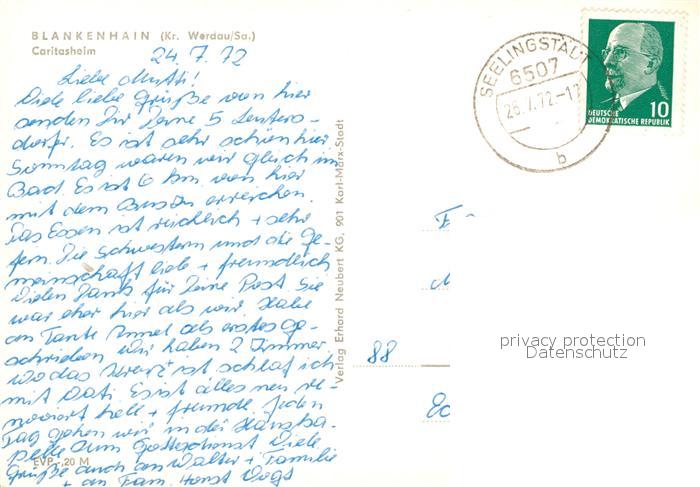 BLANKENHAIN (Kr. Werdau/Sa.)
Caritasheim
24.7.72
Liebe Mutti!
Viele liebe Grüße von hier
senden Dir Deine 5 Leuters-
dorfer. Es ist sehr schön hier
Sonntag waren wir gleich im
Bad. Es ist 6 km von hier
mit dem Bus zu erreichen.
Das Essen ist reichlich + sehr
fein. Die Schwestern und die Ge-
meinschaft liebe + freundlich
Vielen Dank für Deine Post. Sie
war eher hier als wir. Habe
an Tante als erstes ge-
schrieben. Wir haben 2 Zimmer
wo das ist schlaf ich
mit Vati. Es ist alles neu re-
noviert hell + freundl. Jeden
Tag gehen wir in der Hauska-
pelle zum Gottesdienst. Viele
Grüße auch an Walter + Familie
+ an Fam. Horst
EVP -,20 M
Verlag Erhard Neubert KG, 901 Karl-Marx-Stadt
SEELINGSTÄDT
6507
26.7.72
b
10
DEUTSCHE
DEMOKRATISCHE REPUBLIK
88
privacy protection
Datenschutz